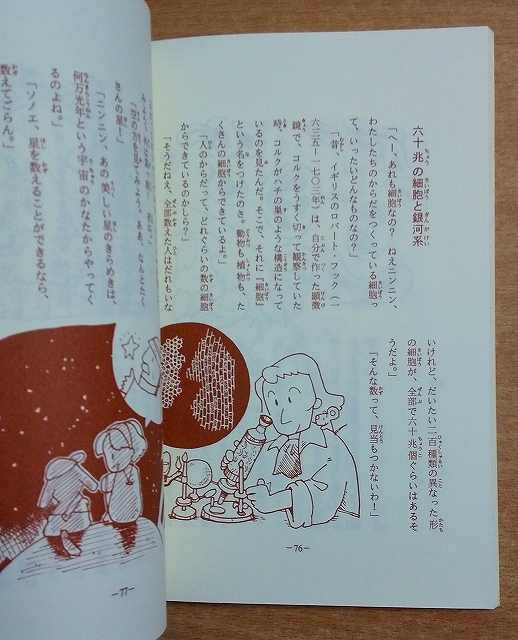 六十兆の細胞と銀河系
「へー、あれも細胞なの? ねえニンニン、
わたしたちのからだをつくっている細胞っ
て、いったいどんなものなの?」
「昔、イギリスのロバート・フック(一
六三五—一七〇三年)は、自分で作った顕微
鏡で、コルクをうすく切って観察していた
時、コルクがハチの巣のような構造になって
いるのを見たんだ。そこで、それに『細胞』
という名をつけたのさ。動物も植物も、た
くさんの細胞からできているよ。」
「人のからだって、どれぐらいの数の細胞
からできているのかしら?」
「そうだねえ、全部数えた人はだれもいな
いけれど、だいたい二百種類の異なった形
の細胞が、全部で六十兆個ぐらいはあるそ
うだよ。」
「そんな数って、見当もつかないわ!」
—76—
さんの星!」
「ニンニン、あの美しい星のきらめきは、
何万光年という宇宙のかなたからやってく
るのよね。」
「ソノエ、星を数えることができるなら、
数えてごらん。」
—77—